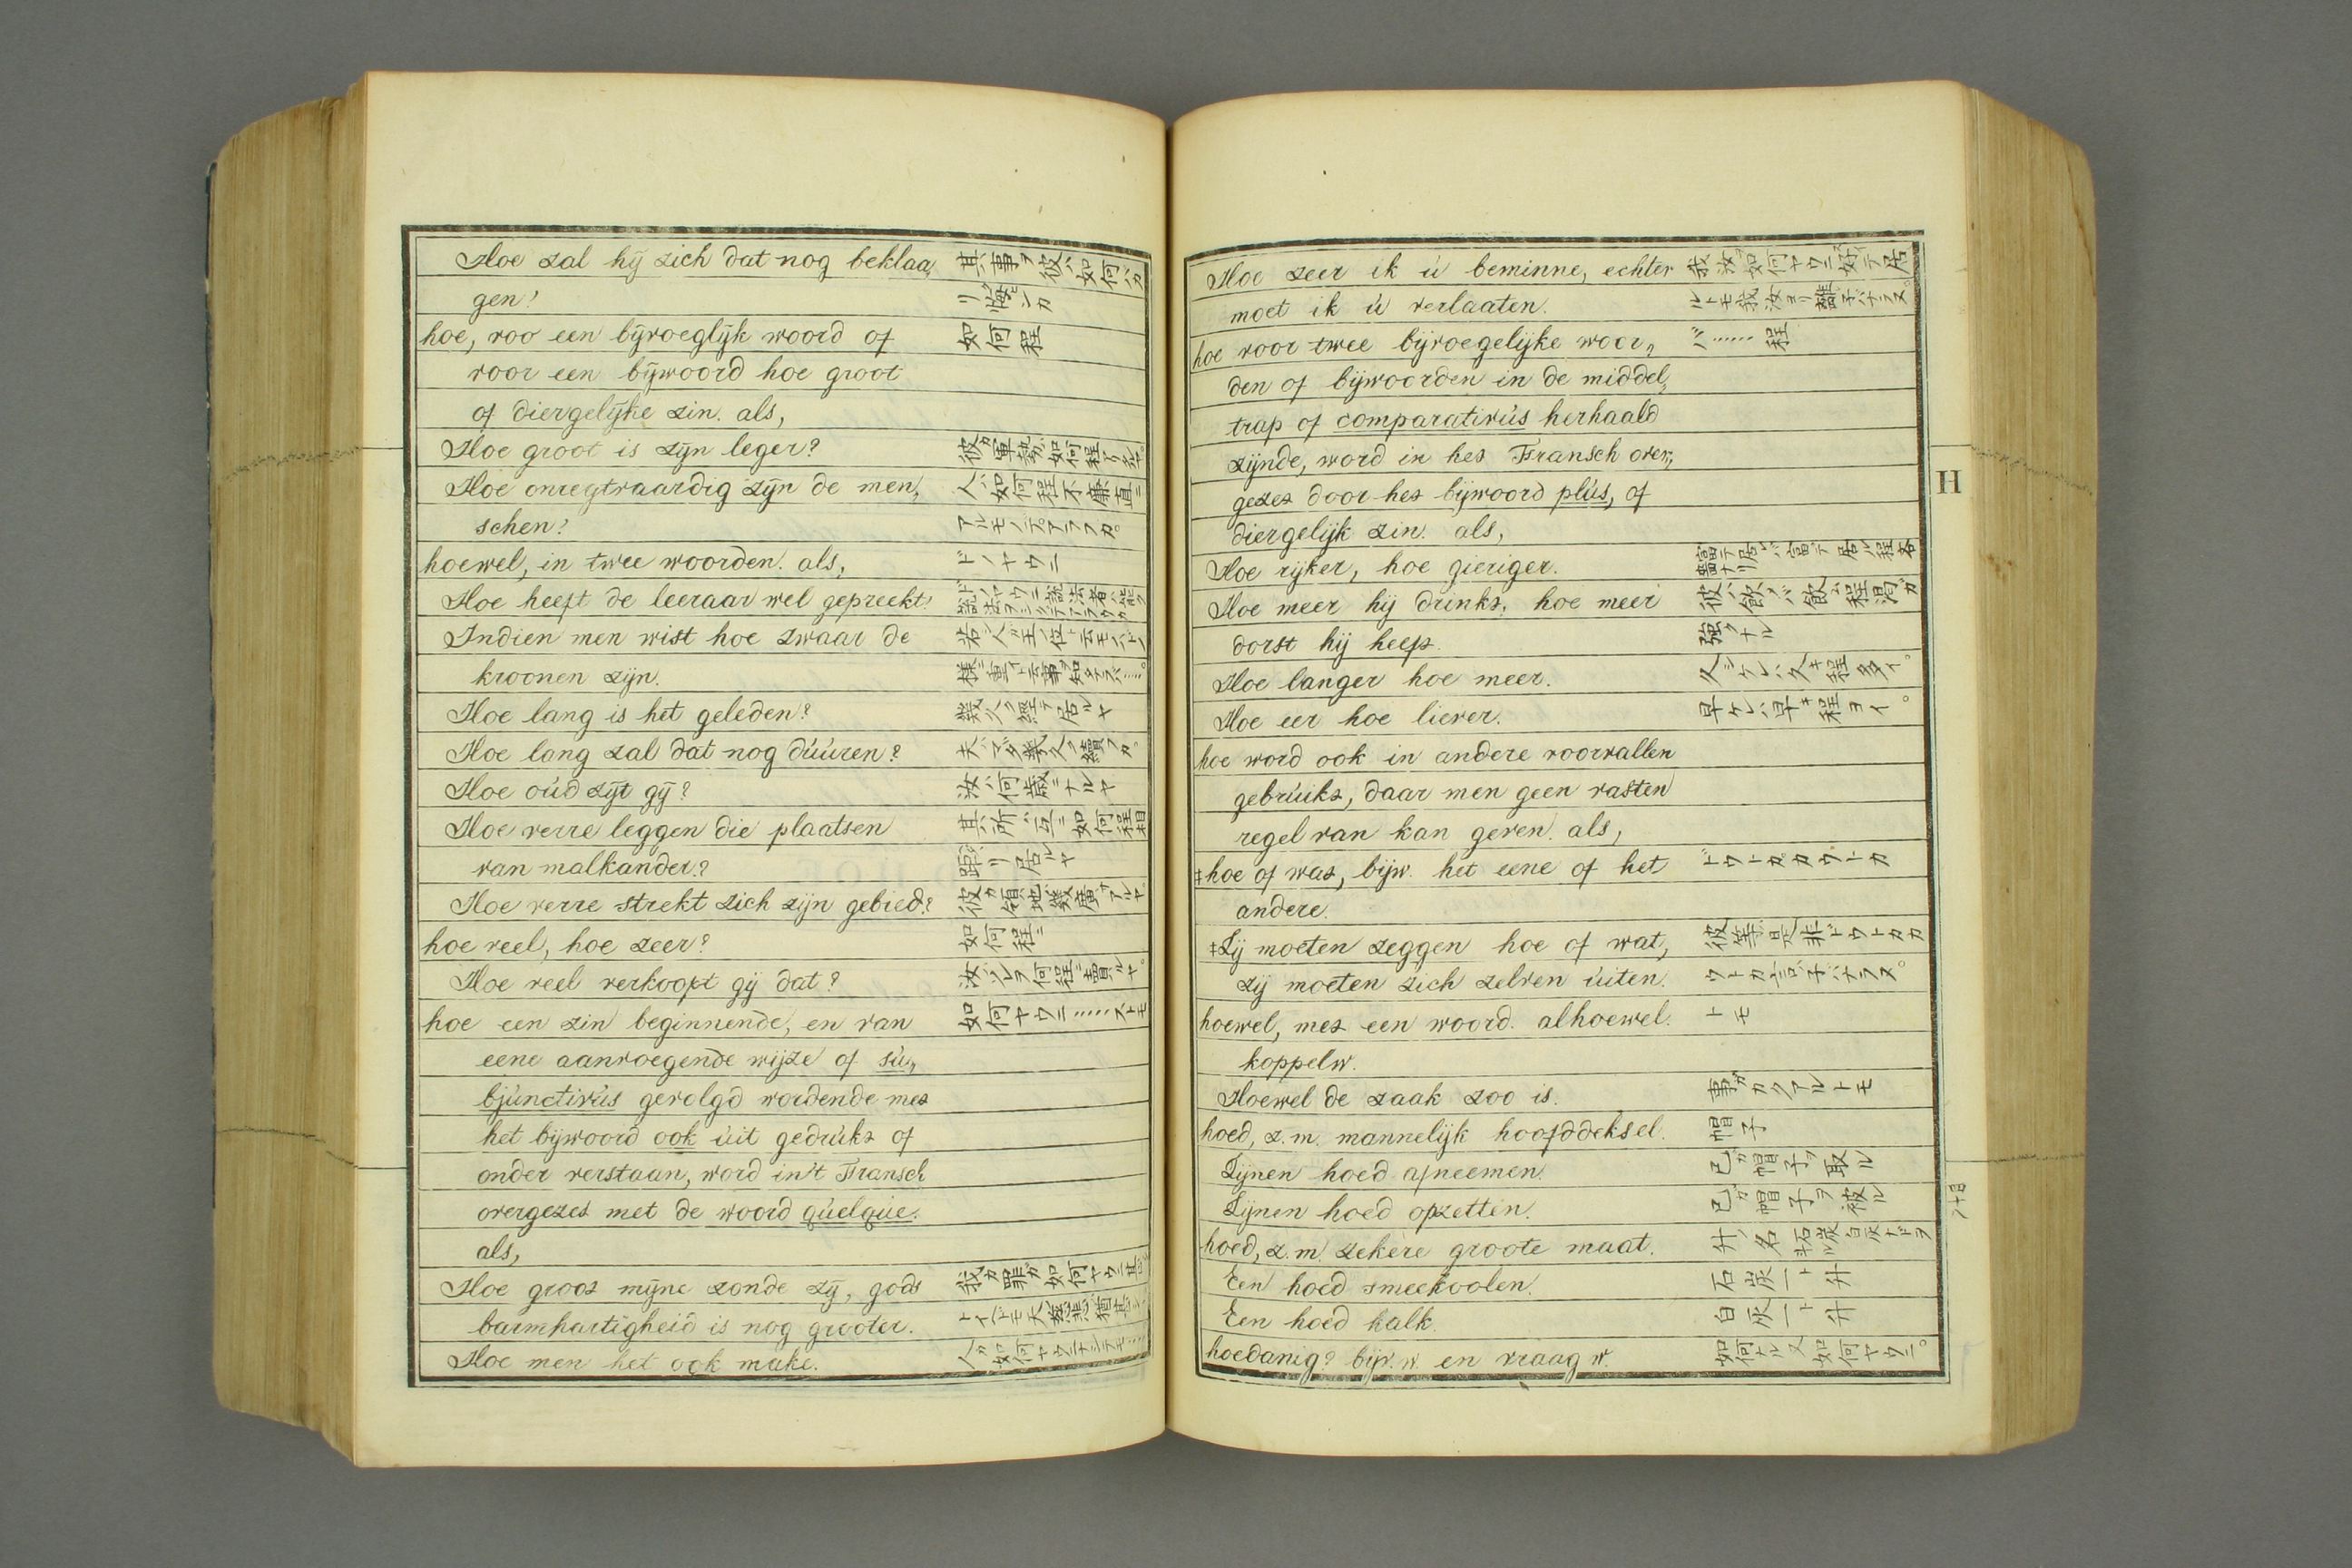 Hoe zal hij zich dat nog beklaa„ 其事ヲ彼ハ如何バカ
gen? リ悔ンカ
hoe, voo een bijvoeglijk woord of 如何程
voor een bijwoord hoe groot
of diergelijke zin. als,
Hoe groot is zijn leger? 彼ガ軍勢如何程
Hoe onregtvaardig zijn de men„ 人ハ如何程不廉直ニ
schen? アルモノデアラフカ。
hoewel, in twee woorden. als, ドノヤウニ
Hoe heeft de leeraar wel gepreekt!
Indien men wist hoe zwaar de
kroonen zijn.
Hoe lang is het geleden? 幾久ク經テ居ルヤ
Hoe lang zal dat nog dúúren? 夫ハマダ幾久ク續フカ。
Hoe oúd zijt gij? 汝ハ何歳ニナルヤ
Hoe verre leggen die plaatsen 其所ハ互ニ如何程相
van malkander? 距リ居ルヤ
Hoe verre strekt zich zijn gebied? 彼ガ領地幾廣クアルヤ。
hoe veel, hoe zeer? 如何程ニ
Hoe veel verkoopt gij dat? 汝ソレヲ何程ニ賣ルヤ。
hoe een zin beginnende, en van 如何ヤウニ……ストモ
eene aanvoegende wijze of sú„
bjúnctivús gevolgd wordende mez
het bijwoord ook úit gedrúkz of
onder verstaan, word in't Fransch
overgezez met de woord qúelqúe.
als,
Hoe grooz mijne zonde zij, gods 我ガ罪ガ如何ヤウニ甚
barmhartigheid is nog grooter.
Hoe men het ook make. 人ガ如何ヤウニ
Hoe zeer ik ú beminne, echter 我汝ヲ如何ヤウニ好イテ居
moet ik ú verlaaten. ルトモ我汝ヨリ離子バナラヌ。
hoe voor twee bijvoegelijke woor„ バ……程
den of bijwoorden in de middel„
trap of comparativús herhaald
zijnde, word in hez Fransch over„
gezez door hez bijwoord plús, of
diergelijk zin. als,
Hoe rijker, hoe gieriger. 富テ居レバ富テ居ル程吝嗇ナリ
Hoe meer hij drinkz, hoe meer 彼ハ飲メバ飲ム程渇ガ
dorst hij heefz. 強クナル
Hoe langer hoe meer. 久シケレバ久キ程多イ。
Hoe eer hoe liever. 早ケレバ早キ程ヨイ。
hoe word ook in andere voorvallen
gebrúikz, daar men geen vasten
regel van kan geven. als,
‡hoe of waz, bijw. het eene of het ドウトカカウトカ
andere.
‡Zij moeten zeggen hoe of wat, 彼等ハ是非ドウトカカ
zij moeten zich zelven úiten. ウトカ言子バナラヌ。
hoewel, mez een woord. alhoewel. トモ
koppelw.
Hoewel de zaak zoo is. 事ガカクアルトモ
hoed, z.m. mannelijk hoofddeksel. 帽子
Zijnen hoed afneemen. 已ガ帽子ヲ取ル
Zijnen hoed opzetten. 已ガ帽子ヲ被ル
hoed, z.m. zekere groote maat. 升ノ名
Een hoed smeekoolen. 石炭一ト升
Een hoed kalk. 白灰一ト升
hoedanig? bijv. w. en vraag w. 如何ナル又如何ヤウニ。
H